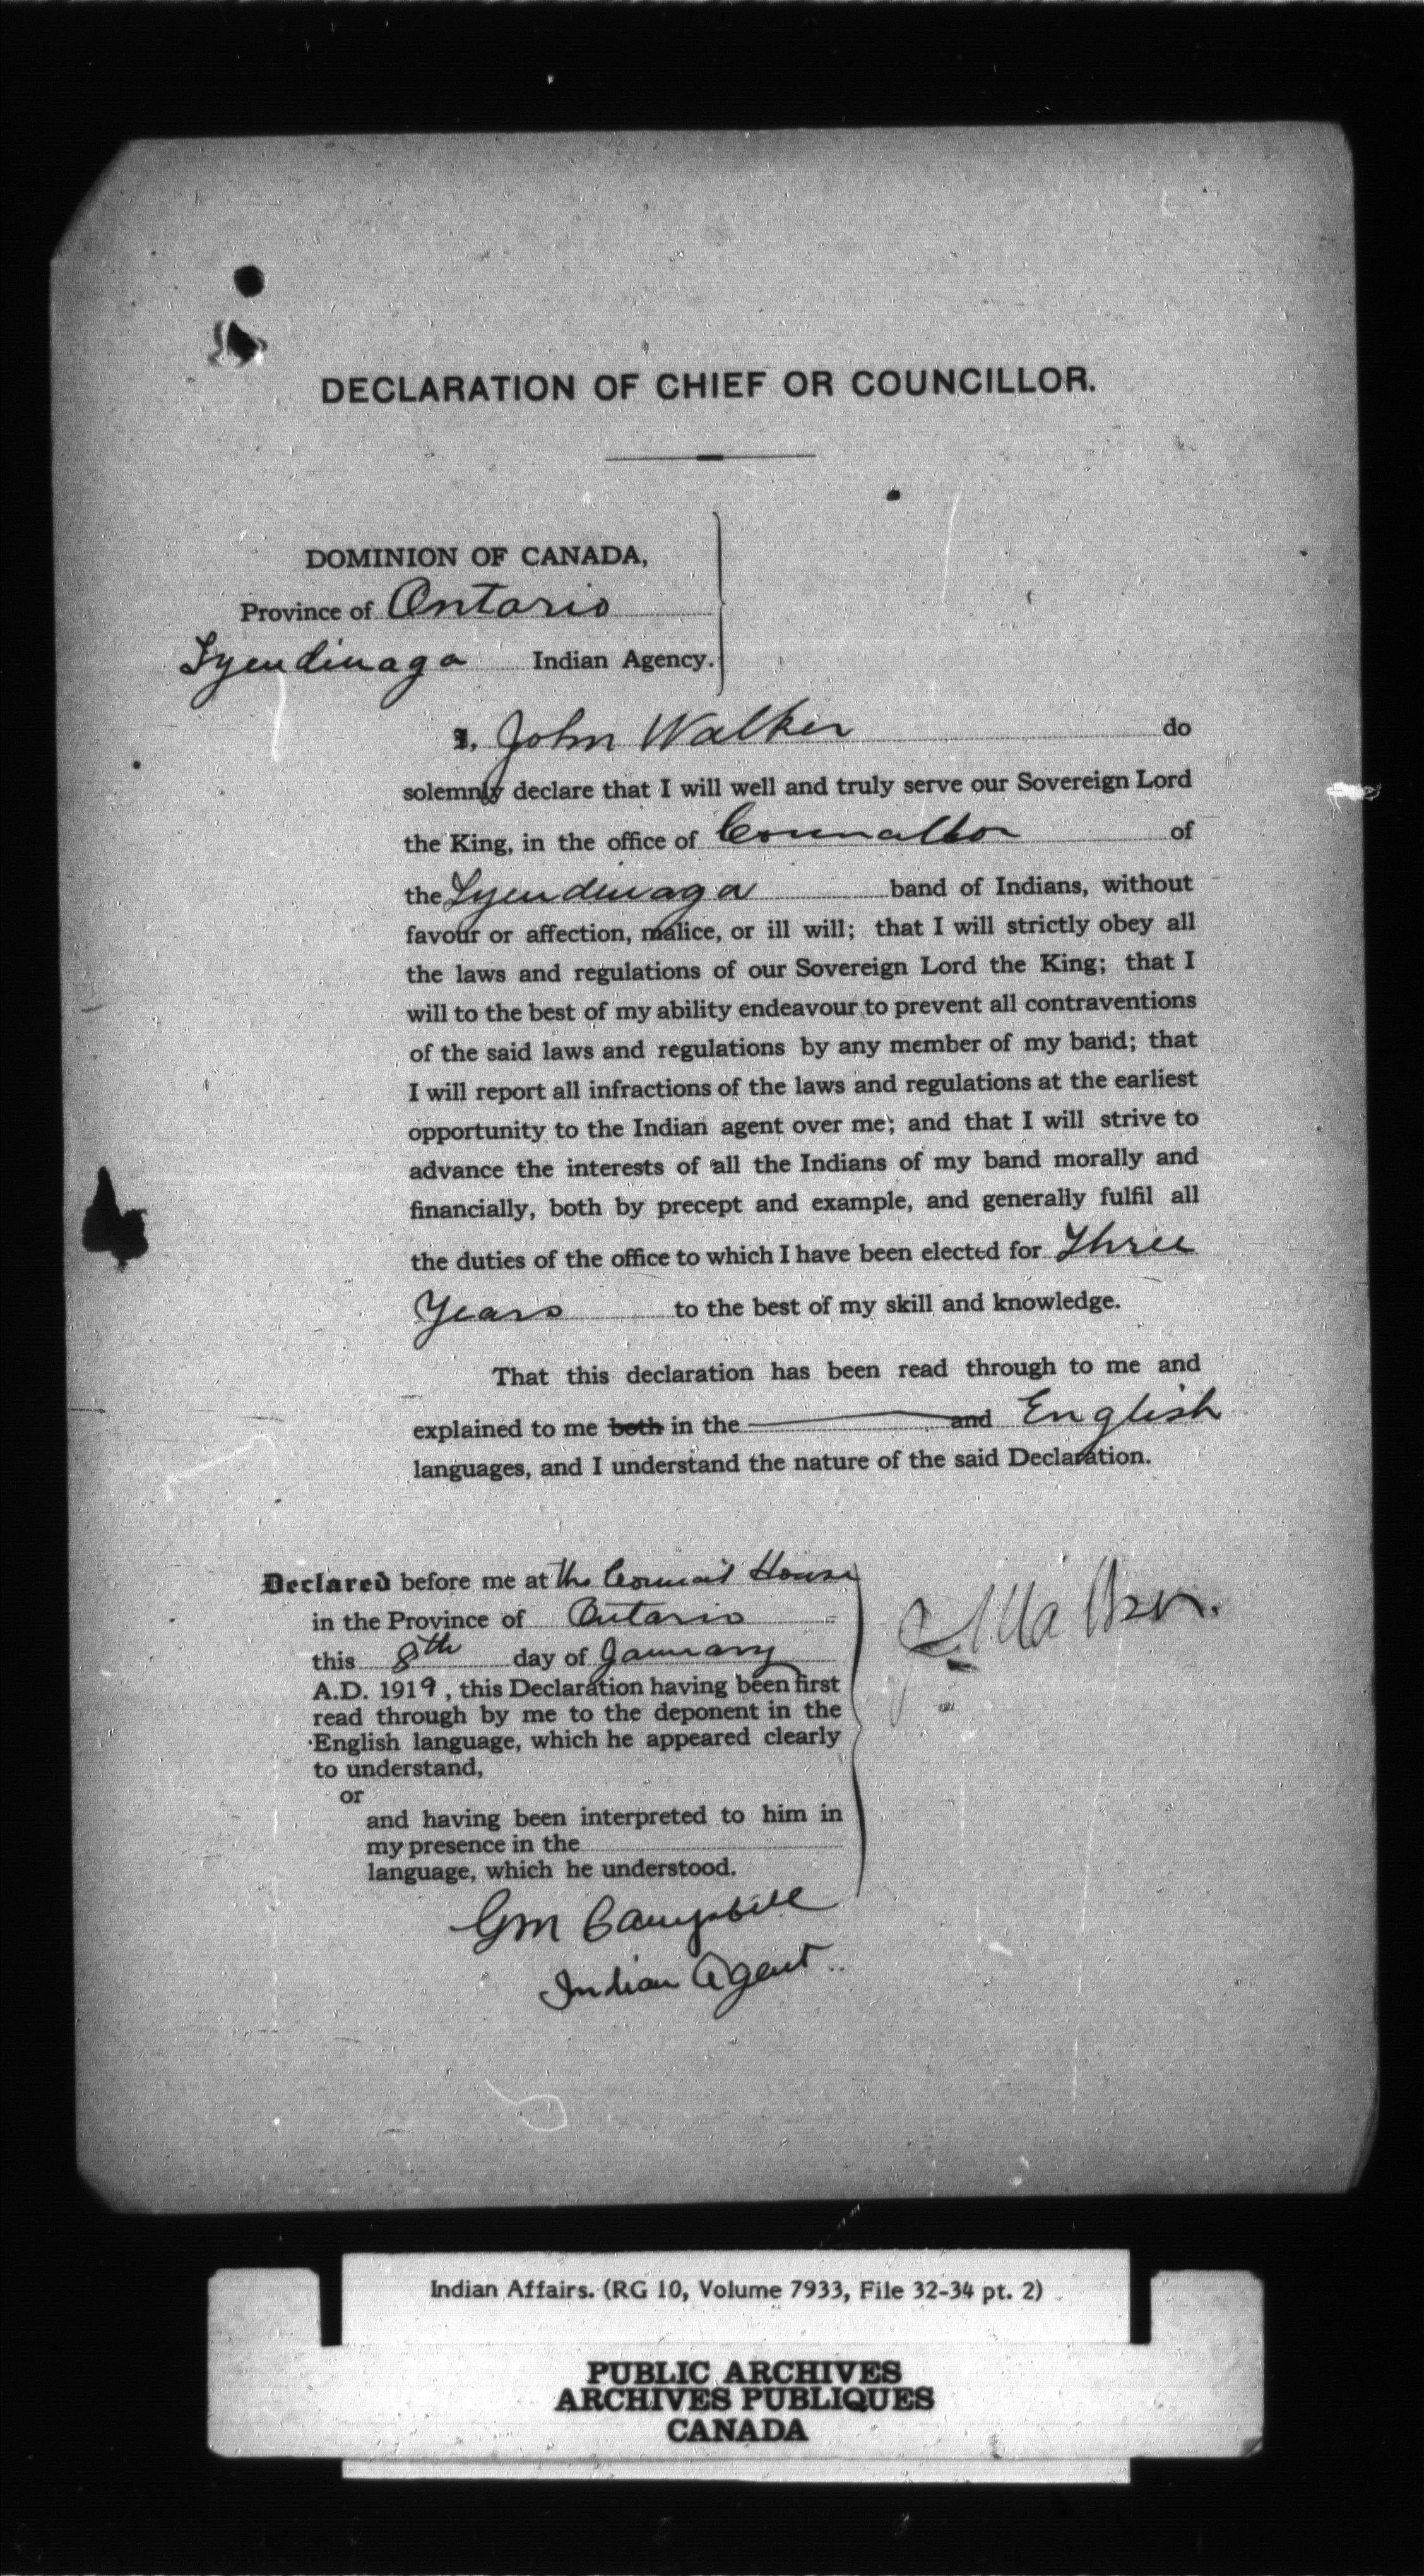 DECLARATION OF CHIEF OR COUNCILLOR.
DOMINION OF CANADA,
Province of Ontario
Tyendinaga Indian Agency.
I, John Walker do
solemnly declare that I will well and truly serve our Sovereign Lord
the King, in the office of Councillor of
the Tyendinaga band of Indians, without
favour or affection, malice, or ill will; that I will strictly obey all
the laws and regulations of our Sovereign Lord the King; that I
will to the best of my ability endeavour to prevent all contraventions
of the said laws and regulations by any member of my band; that
I will report all infractions of the laws and regulations at the earliest
opportunity to the Indian agent over me; and that I will strive to
advance the interests of all the Indians of my band morally and
financially, both by precept and example, and generally fulfil all
the duties of the office to which I have been elected for Three
Years to the best of my skill and knowledge.
That this declaration has been read through to me and
explained to me both in the and English
languages, and I understand the nature of the said Declaration.
Declared before me at the Council House
in the Province of Ontario
this 8th day of January
A.D. 1919, this Declaration having been first
read through by me to the deponent in the
English language, which he appeared clearly
to understand,
or
and having been interpreted to him in
my presence in the
language, which he understood.
J Walker.
GM Campbell
Indian Agent
Indian Affairs. (RG 10, Volume 7933, File 32-34 pt. 2)
PUBLIC ARCHIVES
ARCHIVES PUBLIQUES
CANADA